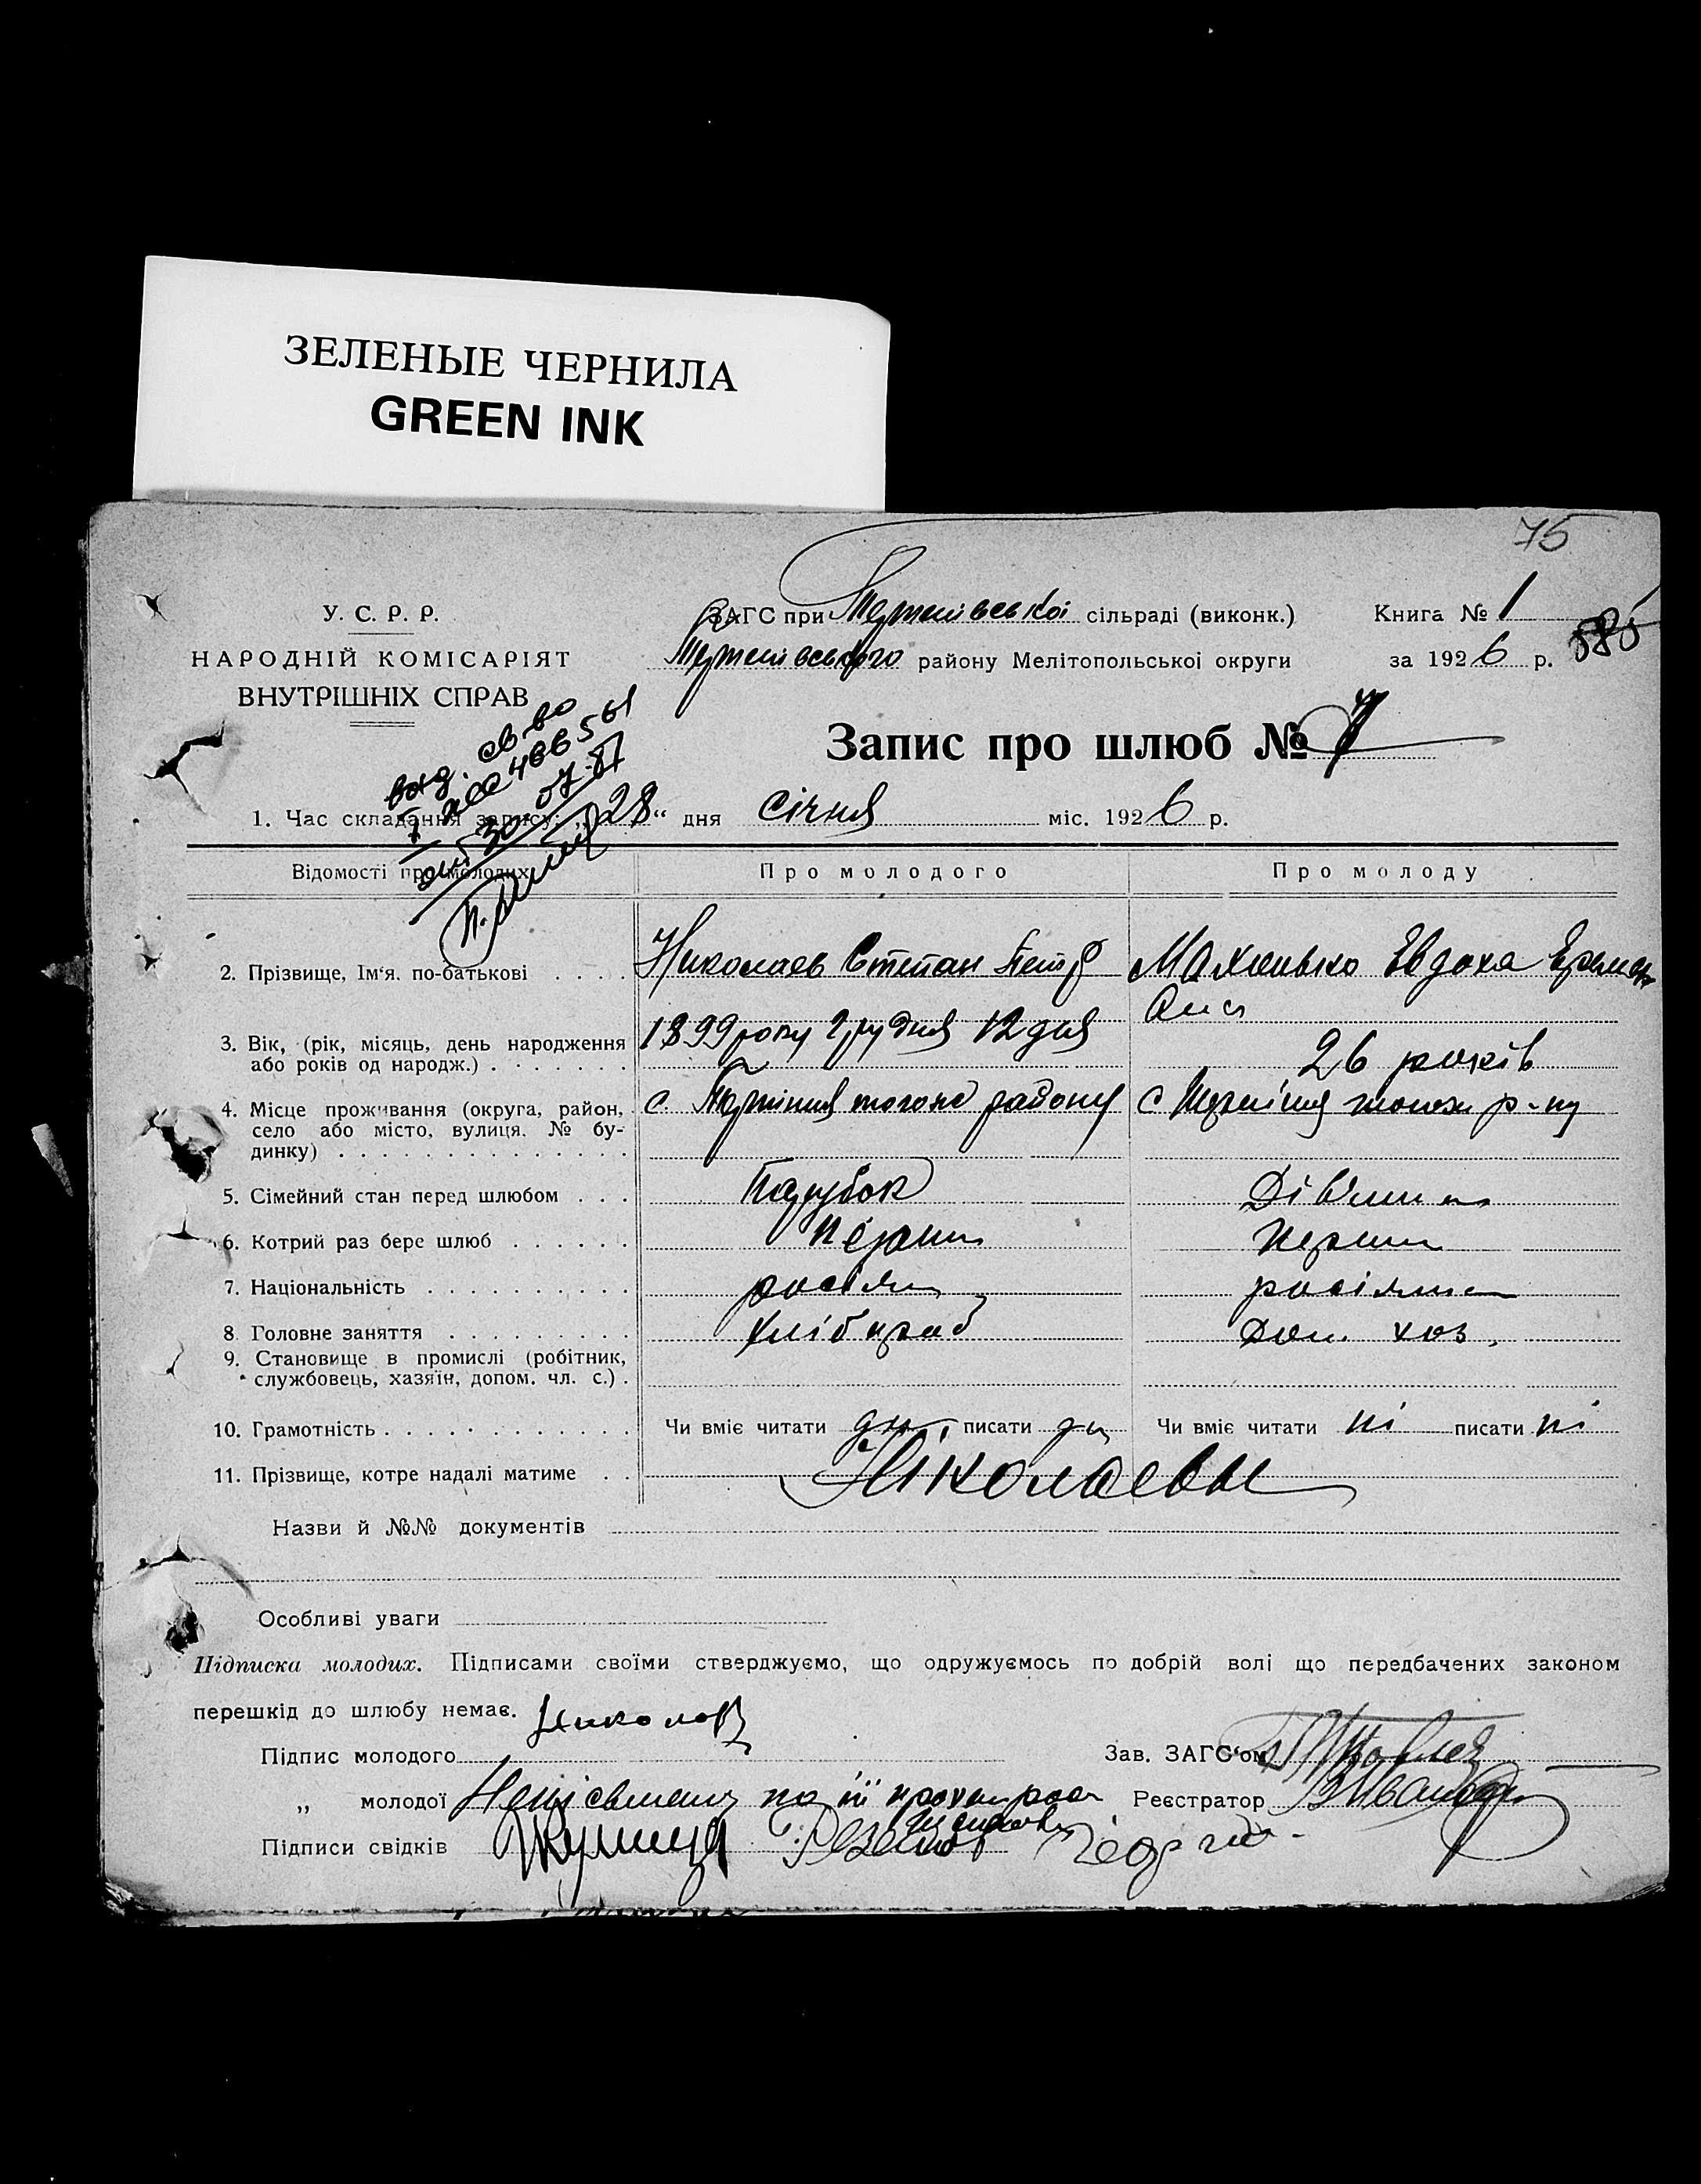 ЗЕЛЕНЫЕ ЧЕРНИЛА
GREEN INK
75
У. С. Р. Р.
НАРОДНІЙ КОМІСАРІЯТ
ВНУТРІШНІХ СПРАВ
ЗАГС при сільраді (виконк.)
району Мелітопольськоі округи
Книга № 1
за 1926 р.
585
Запис про шлюб № 7
1. Час складання запису: „28“ дня січня міс. 1926 р.
Відомості про молодих
Про молодого
Про молоду
2. Прізвище, Ім‘я, по-батькові . . . .
Николаев Степан Петр
Махонько Евдоха
3. Вік, (рік, місяць, день народження
або років од народж.) . . . . . . .
1899 року грудня 12 дня
26 років
4. Місце проживання (округа, район,
село або місто, вулиця, № бу-
динку) . . . . . . . . . . . . . .
с. району
с р-ну
5. Сімейний стан перед шлюбом . . .
Парубок
Дівчина
6. Котрий раз бере шлюб . . . . . .
перший
перший
7. Національність . . . . . . . . . .
росіян
росіянка
8 Головне заняття . . . . . . . . .
хлібнраб
Дом. хоз.
9. Становище в промислі (робітник,
службовець, хазяїн, допом. чл. с.) .
10. Грамотність . . . . . . . . . . . .
Чи вміє читати да писати да
Чи вміє читати ні писати ні
11. Прізвище, котре надалі матиме . .
Ніколаевы
Назви й №№ документів
Особливі уваги
Підписка молодих. Підписами своїми стверджуємо, що одружуємось по добрій волі що передбачених законом
перешкід до шлюбу немає.
Підпис молодого
Зав. ЗАГС‘ом
„ молодої по її
Реєстратор
Підписи свідків